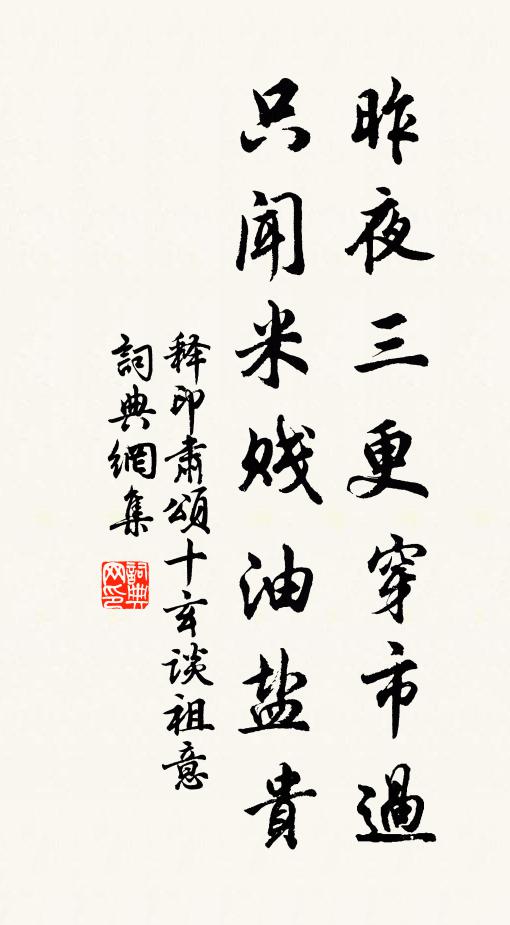 昨夜三更穿市過
只闻米贱油盐貴
释印肅頌十玄談祖意
詞典網集
詞典网印